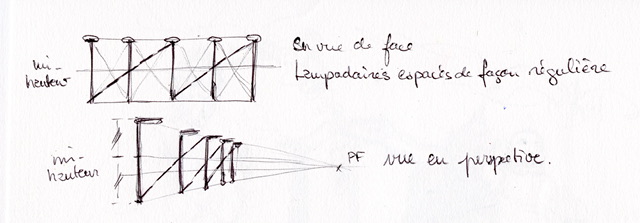 en vue de face
mi-
hauteur
Lampadaires espacés de façon régulière
mi-
hauteur
PF vue en perspective.